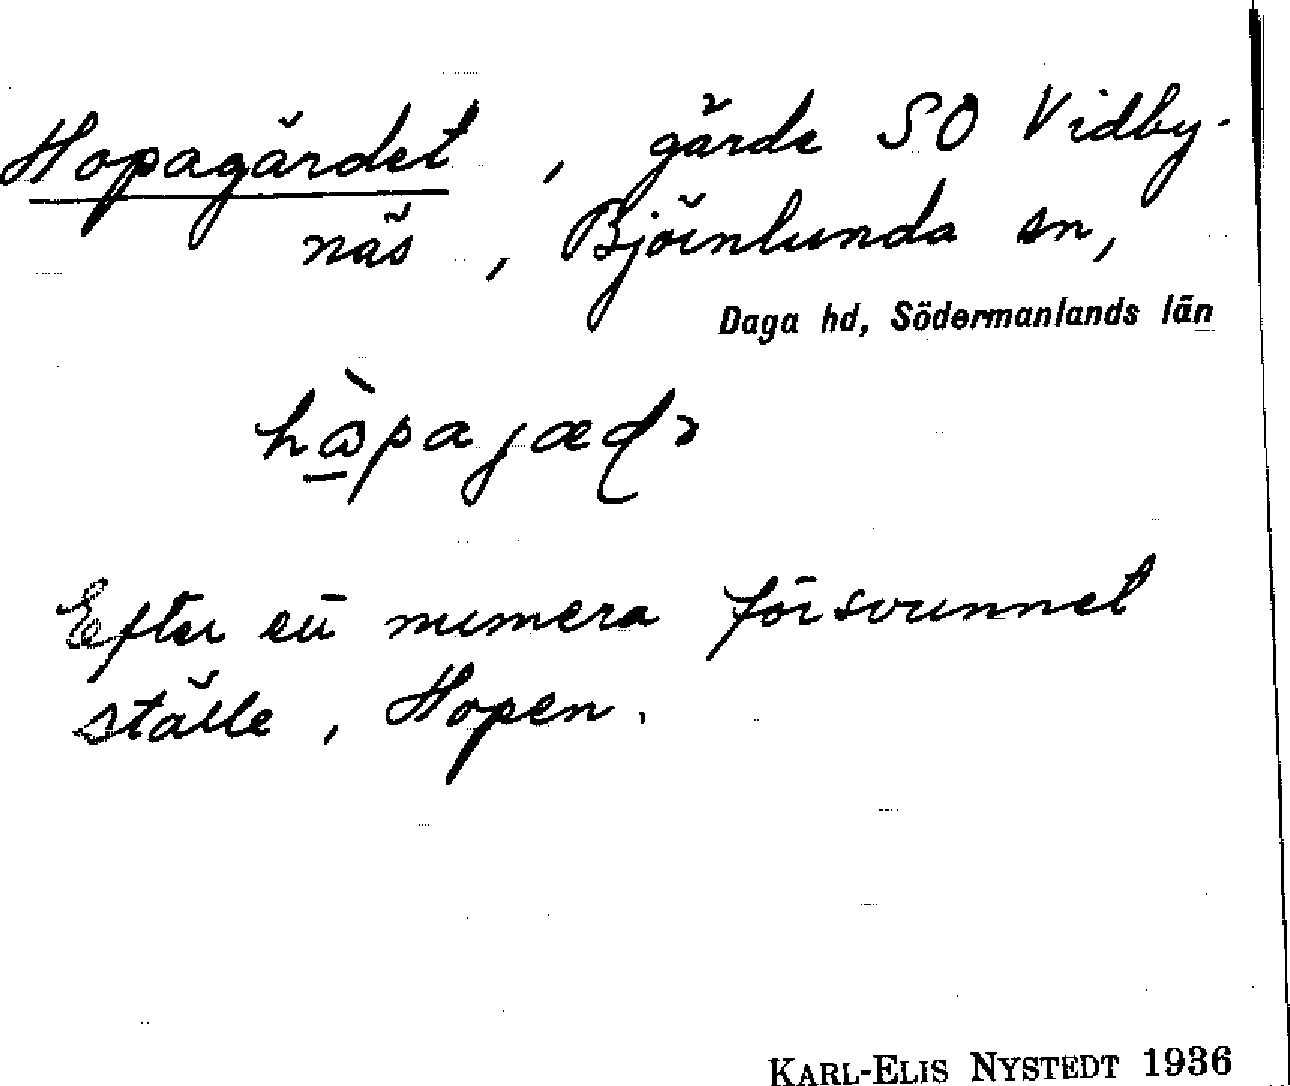 Hopagärdet, gärde SO Vidby-
näs, Björnlunda sn,
Daga hd, Södermanlands län
Efter ett numera försvunnet
ställe, Hopen.
KARL-ELIS NYSTEDT 1936